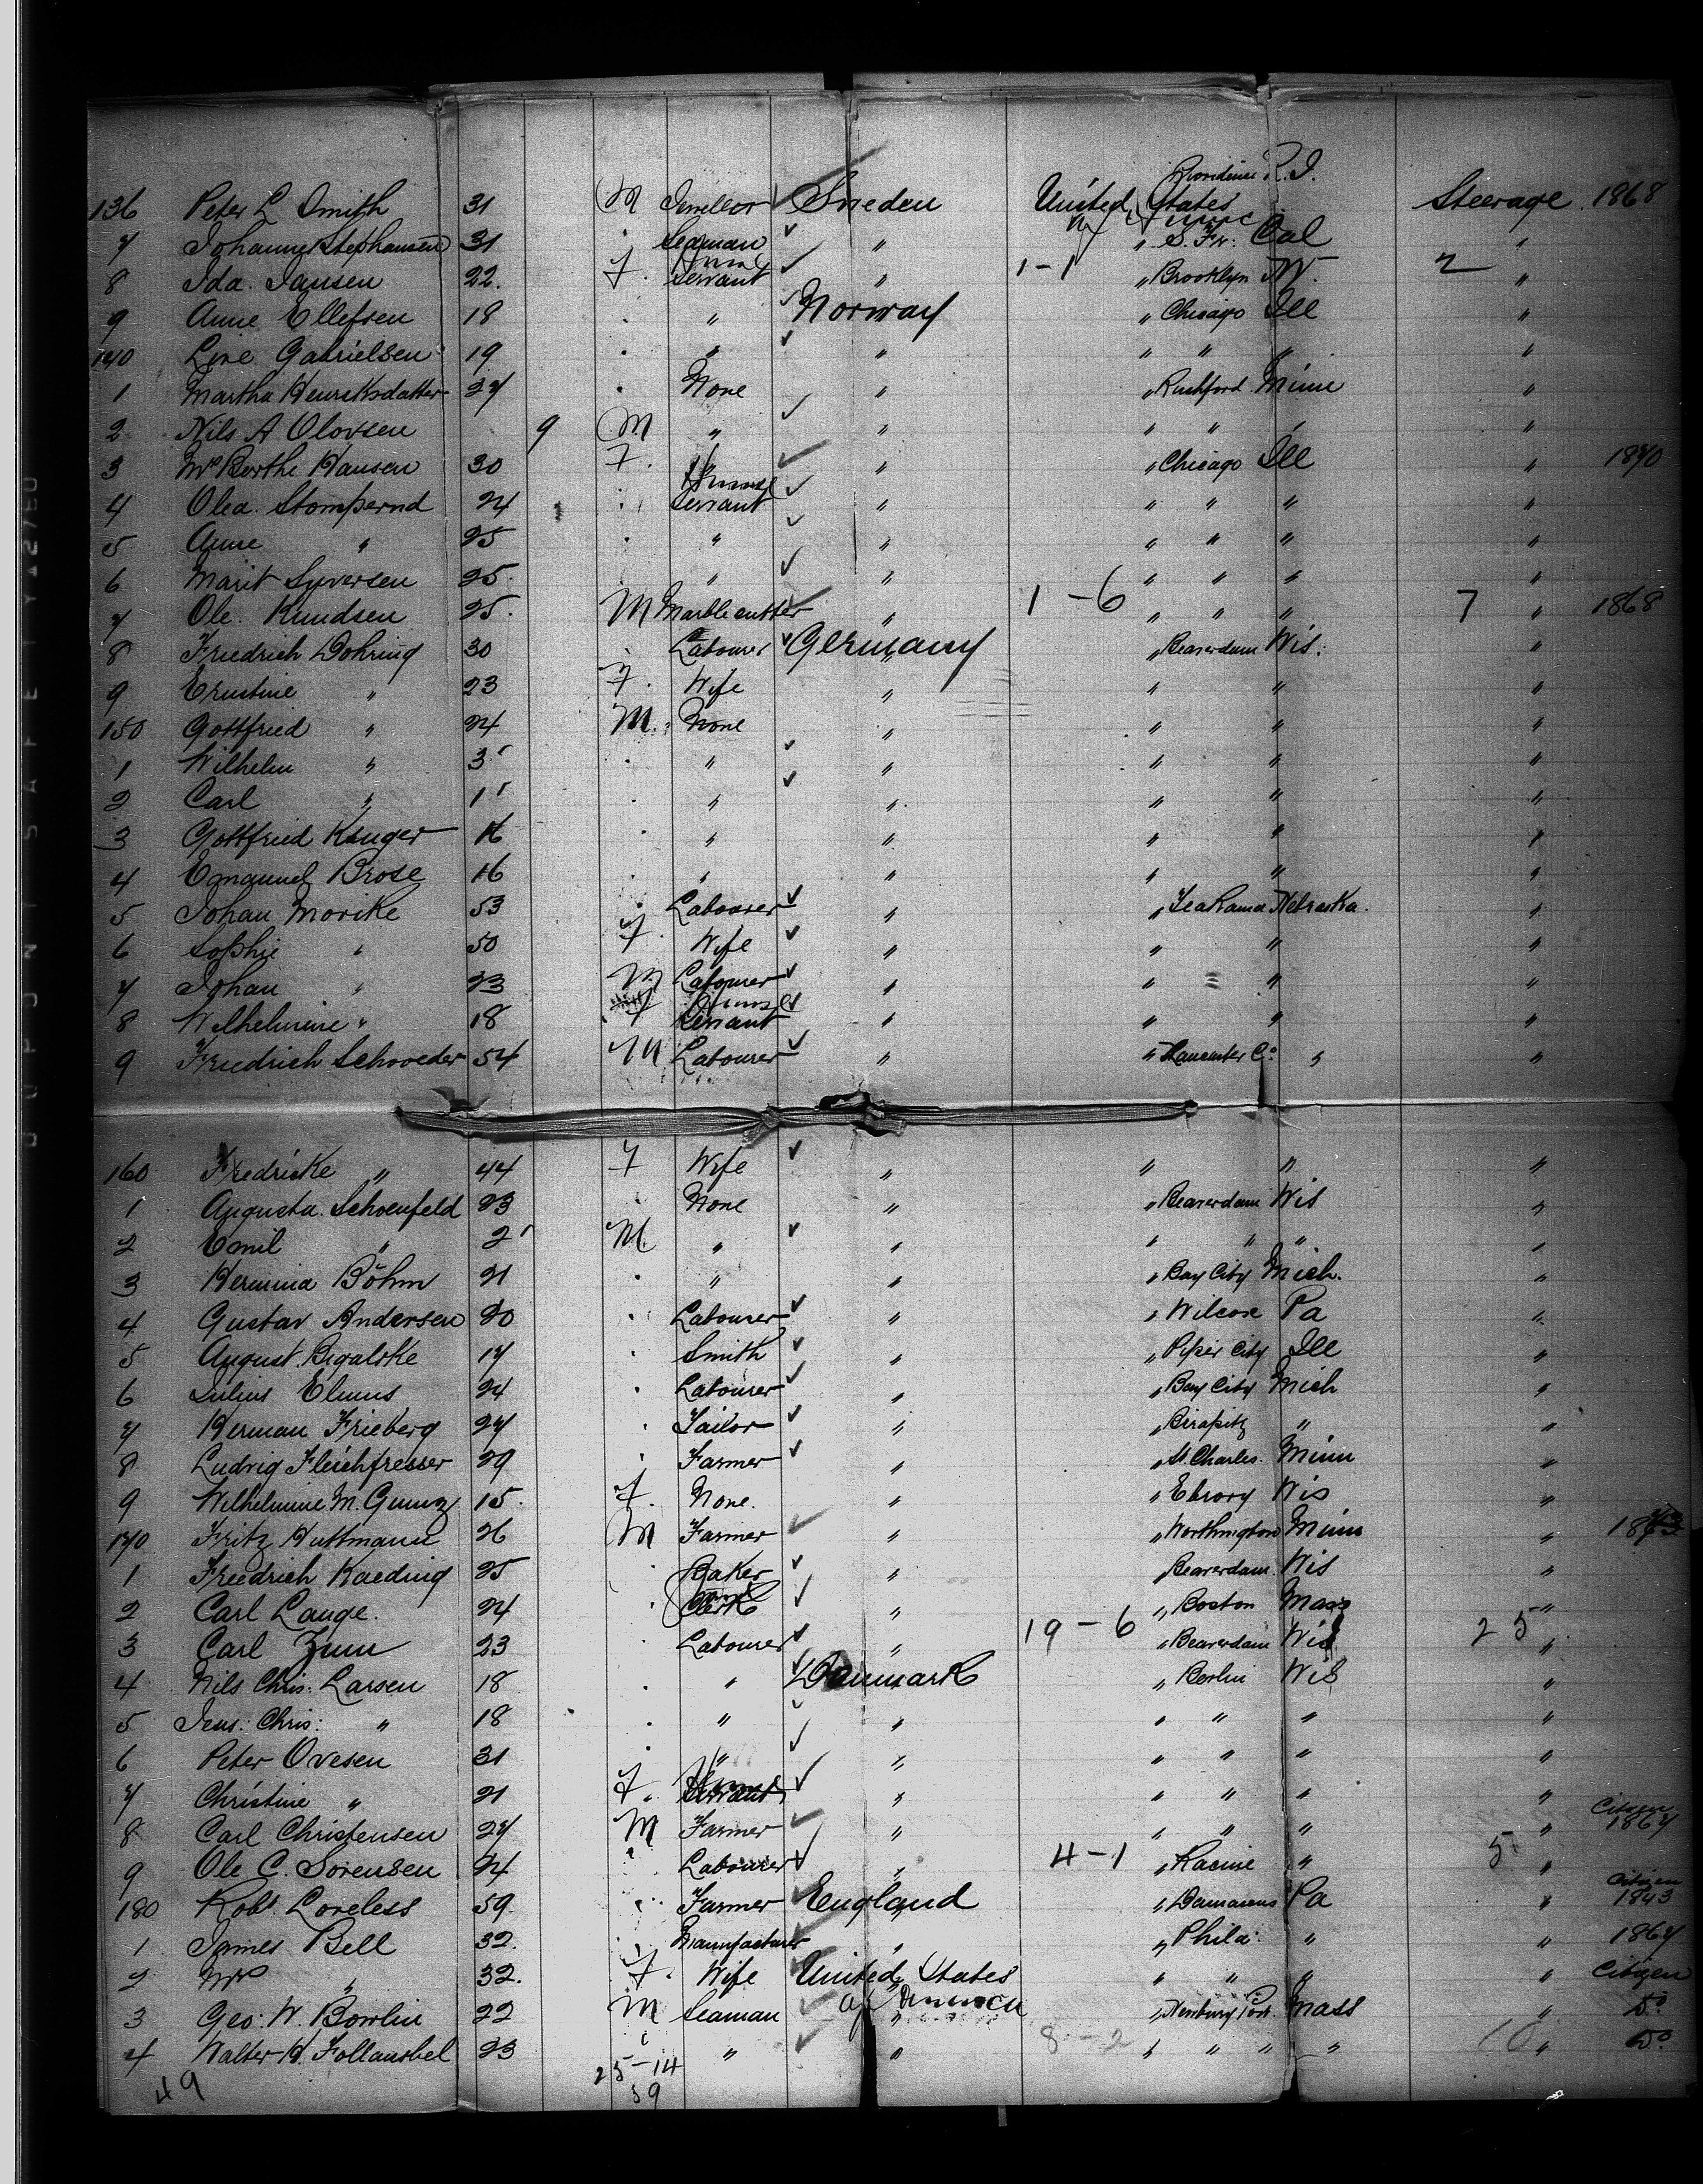 Providence R.I.
136 Peter L Smith 31 M Jeweller Sweden United States Steerage 1868
7 Johannes Stephansen 31 " Seaman " " S. Fr. Cal "
8 Ida Jansen 22. F. Servant " 1-1 " Brooklyn NY. 2 "
9 Anne Ellefsen 18 " " Norway " Chicago Ill "
140 Line Gabrielsen 19 " " " " " " "
1 Martha Henriksdatter 27 " None " " Rushford Minn "
2 Nils A Olovsen 9 M " " " " " "
3 Mrs Berthe Hansen 30 F. " " " Chicago Ill " 1870
4 Olea Stompernd 24 " Servant " " " " "
5 Anne " 25 " " " " " " "
6 Marit Syversen 25. " " " " " " "
7 Ole Knudsen 25. M Marble cutter " 1-6 " " " 7 " 1868
8 Friedrich Dohring 30 " Labourer Germany " Beaverdam Wis. "
9 Ernstine " 23 F. Wife " " " "
150 Gottfried " 24 M. None " " " "
1 Wilhelm " 3 " " " " " "
2 Carl " 1 " " " " " "
3 Gottfried Kanger 16 " " " " " "
4 Emanuel Brose 16 " " " " " "
5 Johan Morike 53 " Labourer " " Teakama Nebraska. "
6 Sophie " 50 F Wife " " " "
7 Johan " 23 M Labourer " " = " "
8 Wilhelmine " 18 F Servant " " " "
9 Friedrich Schroeder 54 M Labourer " " Lancaster Co " "
160 Fredricke " 44 F Wife " " " "
1 Augusta Schoenfeld 23 " None " " Beaverdam Wis "
2 Emil " 2 M " " " " " "
3 Hermina Böhm 21 " " " " Bay City Mich. "
4 Gustav Andersen 20 " Labourer " " Wilcox Pa "
5 August Bigalske 17 " Smith " " Piper City Ill "
6 Julius Elmus 24 " Labourer " " Bay City Mich "
7 Herman Frieberg 27 " Tailor " " " "
8 Ludvig Fleichfresser 29 " Farmer " " St Charles. Minn "
9 Wilhelmine M. Gumz 15. F. None. " " Wis "
170 Fritz Huttmann 26 M Farmer " " Worthington Minn "
1 Friedrich Kaeding 25 " Baker " " Beaverdam. Wis "
2 Carl Lange. 24 " Clerk " " Boston Mass "
3 Carl Zum 23 " Labourer " 19-6 " Beaverdam Wis 25 "
4 Nils Chris: Larsen 18 " " Denmark " Berlin Wis "
5 Jens: Chris: " 18 " " " " " " "
6 Peter Ovesen 31 " " " " " " "
7 Christine " 21 F. Servant " " " " "
8 Carl Christensen 27 M Farmer " " " " " Citizen 1867
9 Ole C. Sorensen 24 " Labourer " 4-1 " Racine " 5 "
180 Robt. Loreless 59. " Farmer England " Damascus Pa " Citizen 1843
1 James Bell 32. " Manufacturer " " Phila: " " 1867
2 Mrs " 32. F. Wife United States " " " " Citizen
3 Geo: W. Bowlin 22 M Seaman of America " Newbury Port. Mass " Do.
4 Walter H. Follansbel 23 " " " 8-2 " " " " 10 " Do
49 25-14
39